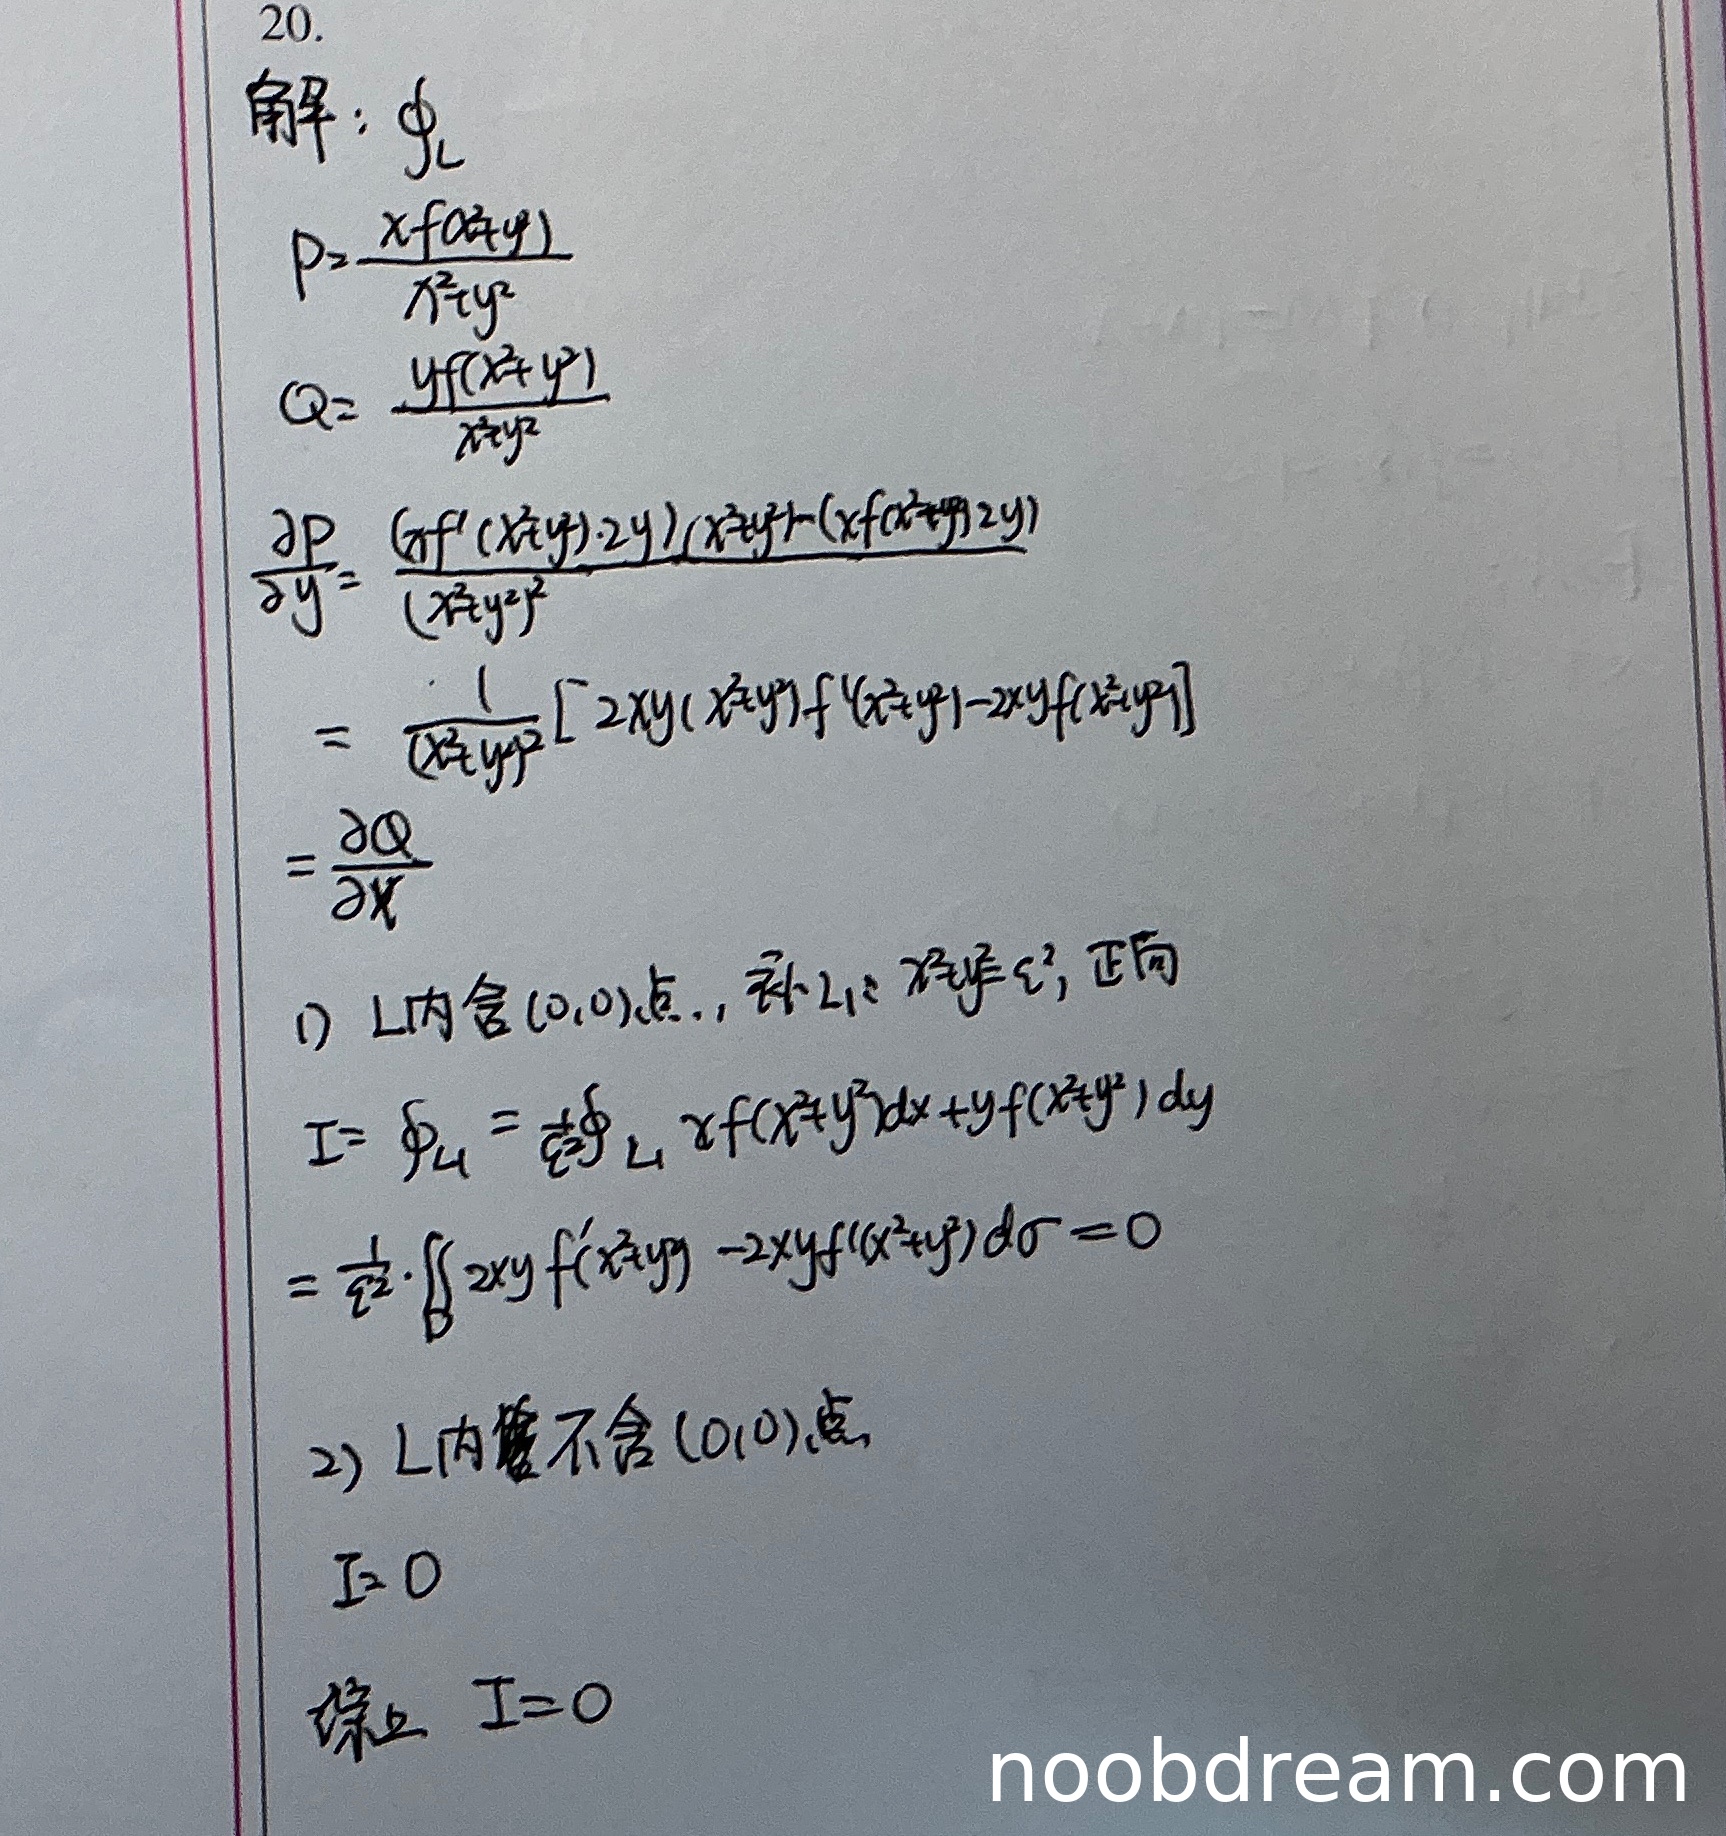 20.
解：∮_L
P = xf(x²+y²) / x²+y²
Q = yf(x²+y²) / x²+y²
∂P/∂y = (xf'(x²+y²)·2y)(x²+y²)-(xf(x²+y²)2y) / (x²+y²)²
= 1/(x²+y²)² [2xy(x²+y²)f'(x²+y²)-2xyf(x²+y²)]
= ∂Q/∂x
1) L内含(0,0)点., 补L₁: x²+y²=ε², 正向
I = ∮_L₁ = 1/ε² ∮_L₁ xf(x²+y²)dx+yf(x²+y²)dy
= 1/ε² · ∬_D 2xyf'(x²+y²) -2xyf'(x²+y²)dσ = 0
2) L内不含(0,0)点
I = 0
综上 I = 0
noobdream.com